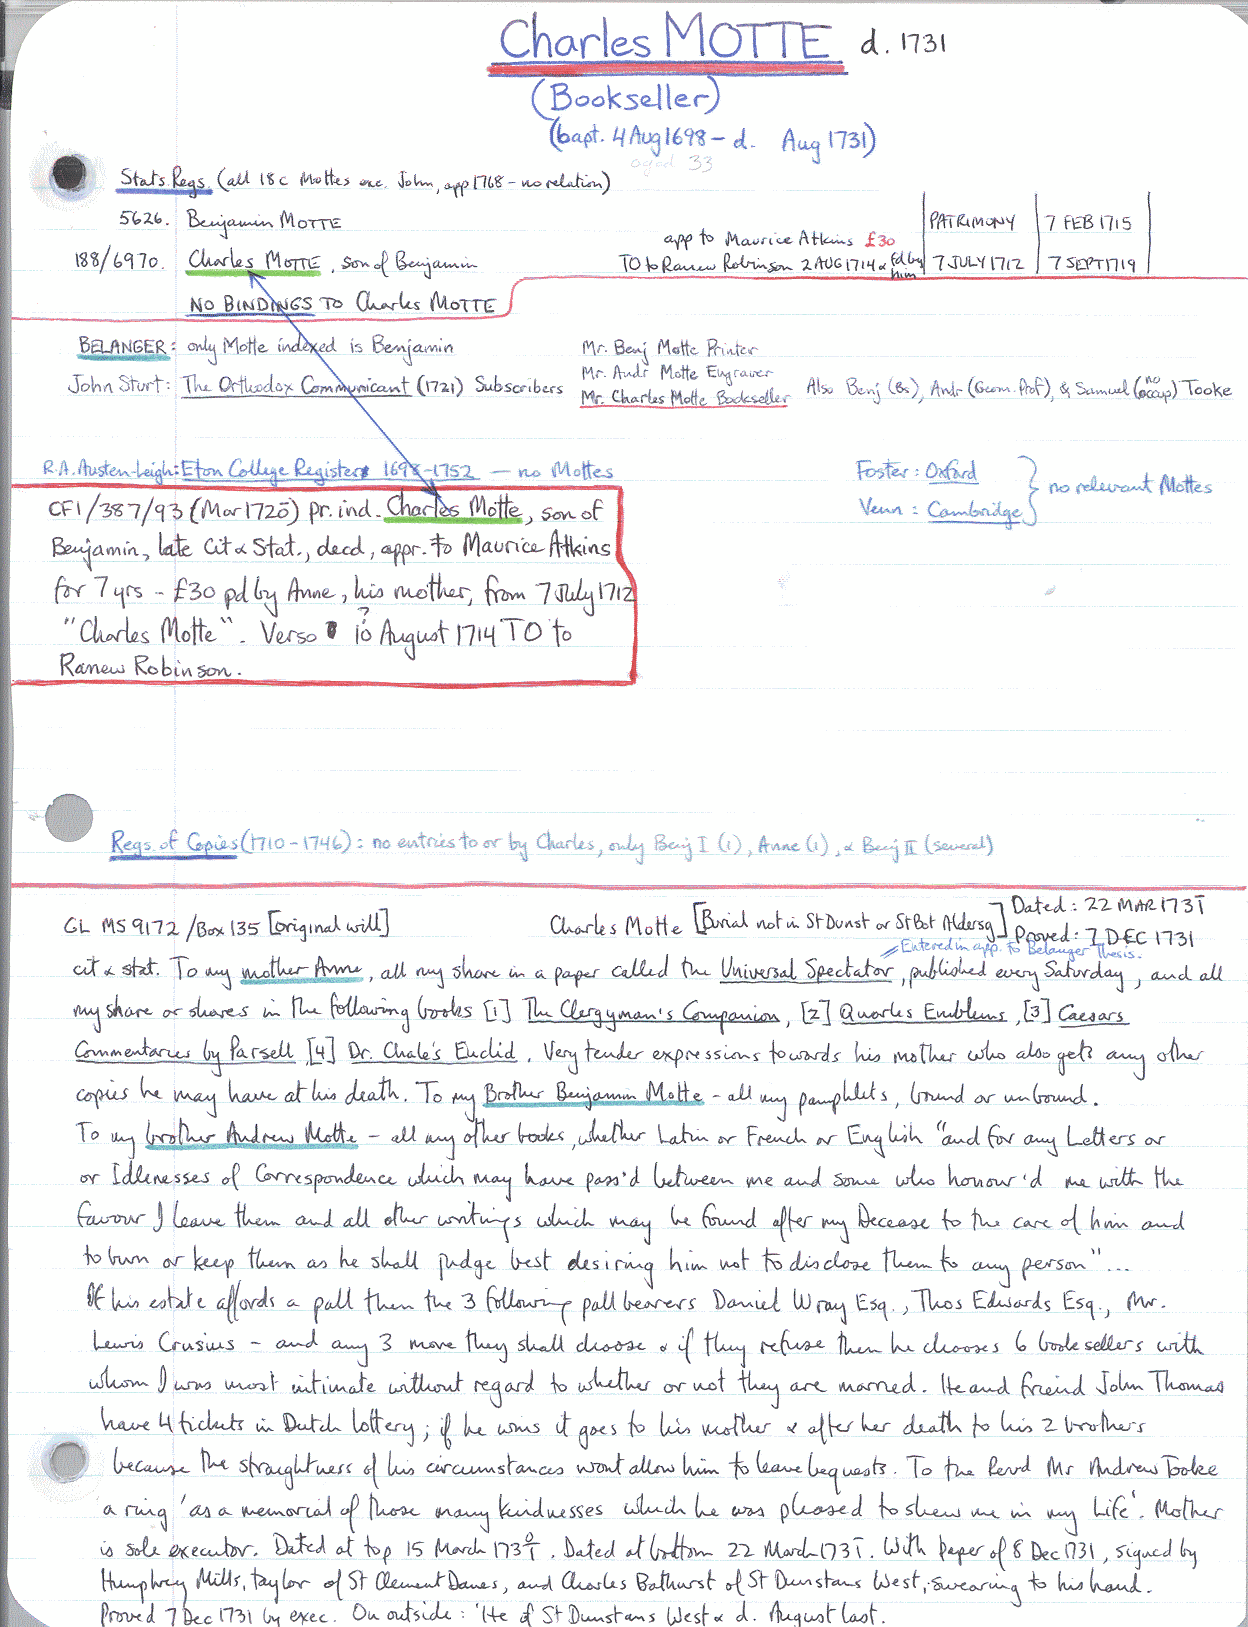 Charles MOTTE d. 1731
(Bookseller)
(bapt. 4 Aug 1698 - d. Aug 1731)
aged 33
Stats Regs. (all 18c Mottes exc. John, app 1768 - no relation)
5626. Benjamin MOTTE PATRIMONY 7 FEB 1715
188/6970. Charles MOTTE, son of Benjamin app to Maurice Atkins £30 TO to Ranew Robinson 2 AUG 1714 & fd by him 7 JULY 1712 7 SEPT 1719
NO BINDINGS TO Charles MOTTE
BELANGER: only Motte indexed is Benjamin
John Sturt: The Orthodox Communicant (1721) Subscribers
Mr. Benj Motte Printer
Mr. Andr Motte Engraver
Mr. Charles Motte Bookseller
Also Benj (Bs), Andr (Geom. Prof), & Samuel (no occup) Tooke
R.A. Austen-Leigh: Eton College Register 1698-1752 — no Mottes
Foster: Oxford
Venn: Cambridge
no relevant Mottes
CF1/387/93 (Mar 1720) pr. ind. Charles Motte, son of
Benjamin, late Cit & Stat., decd, appr. to Maurice Atkins
for 7 yrs - £30 pd by Anne, his mother, from 7 July 1712
"Charles Motte". Verso 10? August 1714 TO to
Ranew Robinson.
Regs of Copies (1710-1746): no entries to or by Charles, only Benj I (1), Anne (1), & Benj II (several)
GL MS 9172/Box 135 [original will] Charles Motte [Burial not in St Dunst or St Bot Aldersg] Dated: 22 MAR 1731
Proved: 7 DEC 1731
Entered in app. to Belanger Thesis.
cit & stat. To my mother Anne, all my share in a paper called the Universal Spectator, published every Saturday, and all
my share or shares in the following books [1] The Clergyman's Companion, [2] Quarles Emblems, [3] Caesars
Commentaries by Parsell [4] Dr. Chale's Euclid. Very tender expressions towards his mother who also gets any other
copies he may have at his death. To my Brother Benjamin Motte - all my pamphlets, bound or unbound.
To my brother Andrew Motte - all my other books, whether Latin or French or English "and for any Letters or
or Idlenesses of Correspondence which may have pass'd between me and some who honour'd me with the
favour I leave them and all other writings which may be found after my Decease to the care of him and
to burn or keep them as he shall judge best desiring him not to disclose them to any person"...
If his estate affords a pall then the 3 following pall bearers Daniel Wray Esq., Thos Edwards Esq., Mr.
Lewis Crusius - and any 3 more they shall choose & if they refuse then he chooses 6 booksellers with
whom I was most intimate without regard to whether or not they are married. He and friend John Thomas
have 4 tickets in Dutch lottery; if he wins it goes to his mother & after her death to his 2 brothers
because the straightness of his circumstances wont allow him to leave bequests. To the Revd Mr Andrew Tooke
a ring 'as a memorial of those many kindnesses which he was pleased to shew me in my Life'. Mother
is sole executor. Dated at top 15 March 1730/1. Dated at bottom 22 March 1731. With paper of 8 Dec 1731, signed by
Humphrey Mills, taylor of St Clement Danes, and Charles Bathurst of St Dunstans West, swearing to his hand.
Proved 7 Dec 1731 by exec. On outside: 'He of St Dunstans West & d. August last.